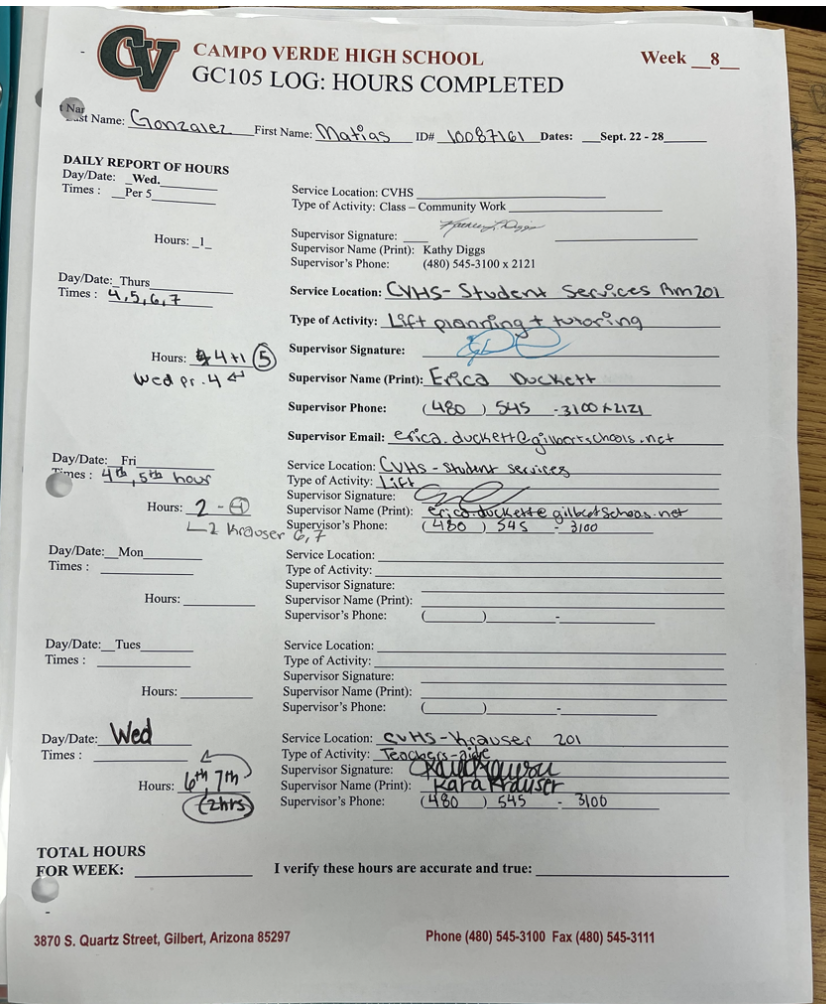 CV
CAMPO VERDE HIGH SCHOOL
Week __8__
GC105 LOG: HOURS COMPLETED
t Nar
ast Name: Gonzalez First Name: Matias ID# 10087161 Dates: __Sept. 22 - 28____
DAILY REPORT OF HOURS
Day/Date: _Wed.
Times : __Per 5
Service Location: CVHS
Type of Activity: Class – Community Work
Hours: _1_
Supervisor Signature:
Supervisor Name (Print): Kathy Diggs
Supervisor's Phone: (480) 545-3100 x 2121
Day/Date:_Thurs
Times : 4,5,6,7
Service Location: CVHS- Student Services Rm201
Type of Activity: Lift planning + tutoring
Hours: 4+1 5
Wed pr. 4
Supervisor Signature:
Supervisor Name (Print): Erica Duckett
Supervisor Phone: (480) 545 -3100 x2121
Supervisor Email: erica.duckett@gilbertschools.net
Day/Date:__Fri
Times : 4th, 5th hour
Service Location: CVHS - Student services
Type of Activity: Lift
Supervisor Signature:
Hours: 2 - 4
2 Krauser 6,7
Supervisor Name (Print): erica.duckett@gilbertschools.net
Supervisor's Phone: (480) 545 - 3100
Day/Date:__Mon
Times :
Service Location:
Type of Activity:
Supervisor Signature:
Hours:
Supervisor Name (Print):
Supervisor's Phone: ( ) -
Day/Date:__Tues
Times :
Service Location:
Type of Activity:
Supervisor Signature:
Hours:
Supervisor Name (Print):
Supervisor's Phone: ( ) -
Day/Date: Wed
Times :
Service Location: CVHS - Krauser 201
Type of Activity: Teachers-aide
Hours: 6th, 7th
(2hrs)
Supervisor Signature: Kara Krauser
Supervisor Name (Print): Kara Krauser
Supervisor's Phone: (480) 545 - 3100
TOTAL HOURS
FOR WEEK:
I verify these hours are accurate and true:
3870 S. Quartz Street, Gilbert, Arizona 85297
Phone (480) 545-3100 Fax (480) 545-3111